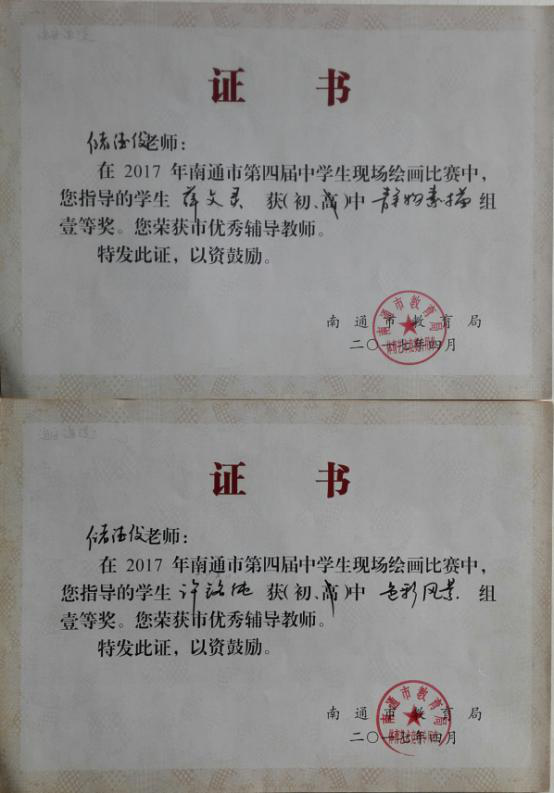 证书
储德俊老师：
在2017年南通市第四届中学生现场绘画比赛中，
您指导的学生 薛文君 获（初、高）中 静物素描 组
壹等奖。您荣获市优秀辅导教师。
特发此证，以资鼓励。
南通市教育局
二〇一七年四月
南通市教育局
证书
老师：
在2017年南通市第四届中学生现场绘画比赛中，
您指导的学生 许 获（初、高）中 色彩风景 组
壹等奖。您荣获市优秀辅导教师。
特发此证，以资鼓励。
南通市教育局
二〇一七年四月
南通市教育局